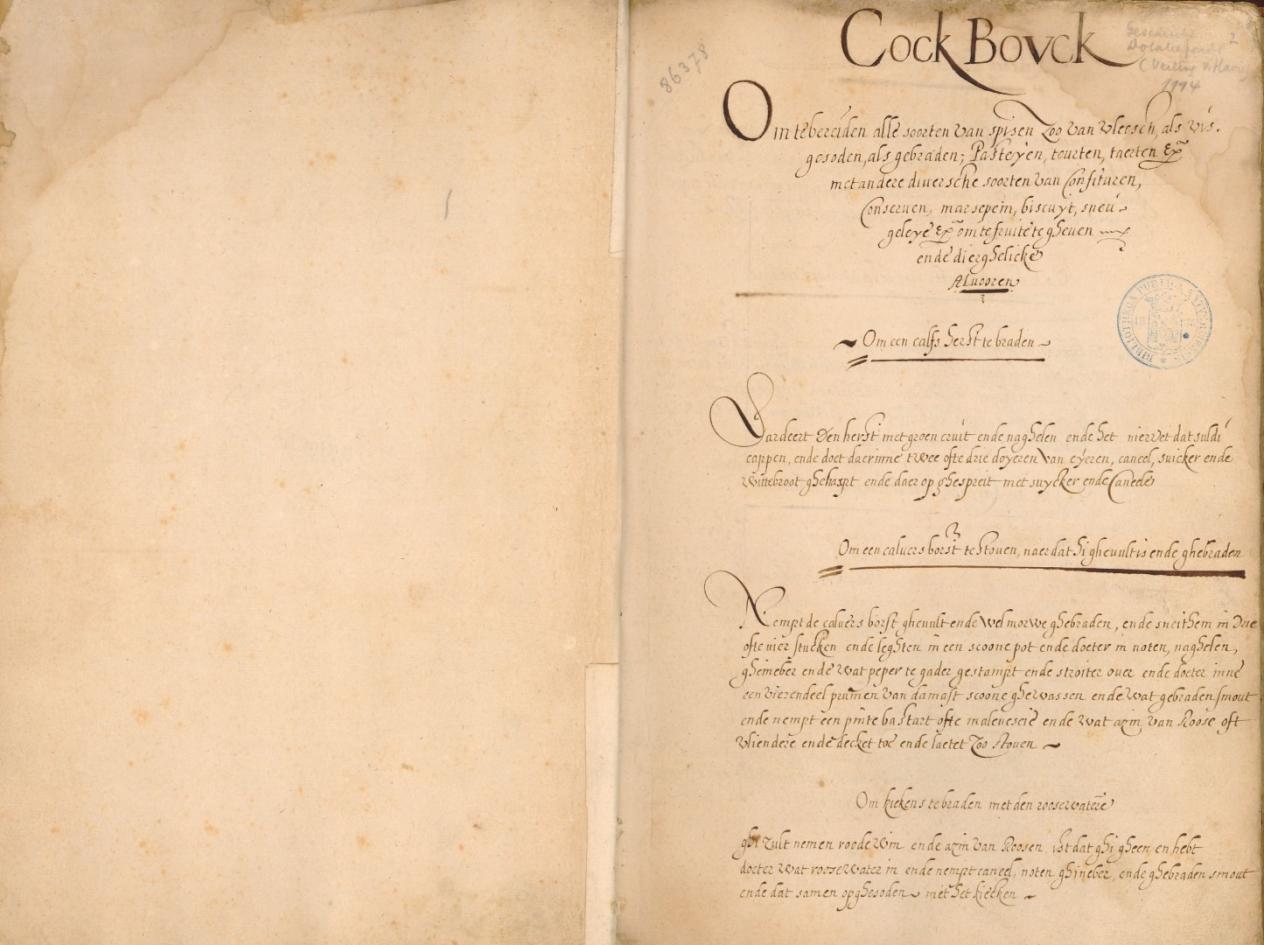 86378
Cock Bovck
2
1994
Om te bereiden alle soorten van spisen zoo van vleesch, als vis.
gosoden, als gebraden; Pasteyen, tourten, taerten &
met andere diuersche soorten van Confituren,
Conseruen, marsepein, biscuyt, sneu-
geleye & om te fruite te gheuen
ende dierghelicke
Alvooren
Om een calfs herst te braden
Lardeert den herst met groen cruit ende naghelen ende het niervet dat suldi
cappen, ende doet daerinne twee ofte drie doyeren van eyeren, caneel, suicker ende
wittebroot gheraspt ende daer op ghespreit met suycker ende Caneele
Om een caluers borst te stouen, naer dat hi gheuult is ende ghebraden
Nempt de caluers borst gheuult ende wel morwe ghebraden, ende sneithem in drie
ofte vier stucken ende leghten in een scoone pot ende doeter in noten, naghelen,
ghineber ende wat peper te gader gestampt ende stroiter ouer ende doeter inne
een vierendeel prumen van damast scoone ghewassen ende wat gebraden smout
ende nempt een pinte bastart ofte maleueseie ende wat azin van Roose oft
vliendere ende decket toe ende laetet zoo stouen
Om kiekens te braden met den roosewatere
ghi zult nemen roode win ende azin van Roosen ist dat ghi gheen en hebt
doeter wat roosewater in ende nempt caneel, noten ghineber, ende ghebraden smout
ende dat samen opghesoden met het kiecken